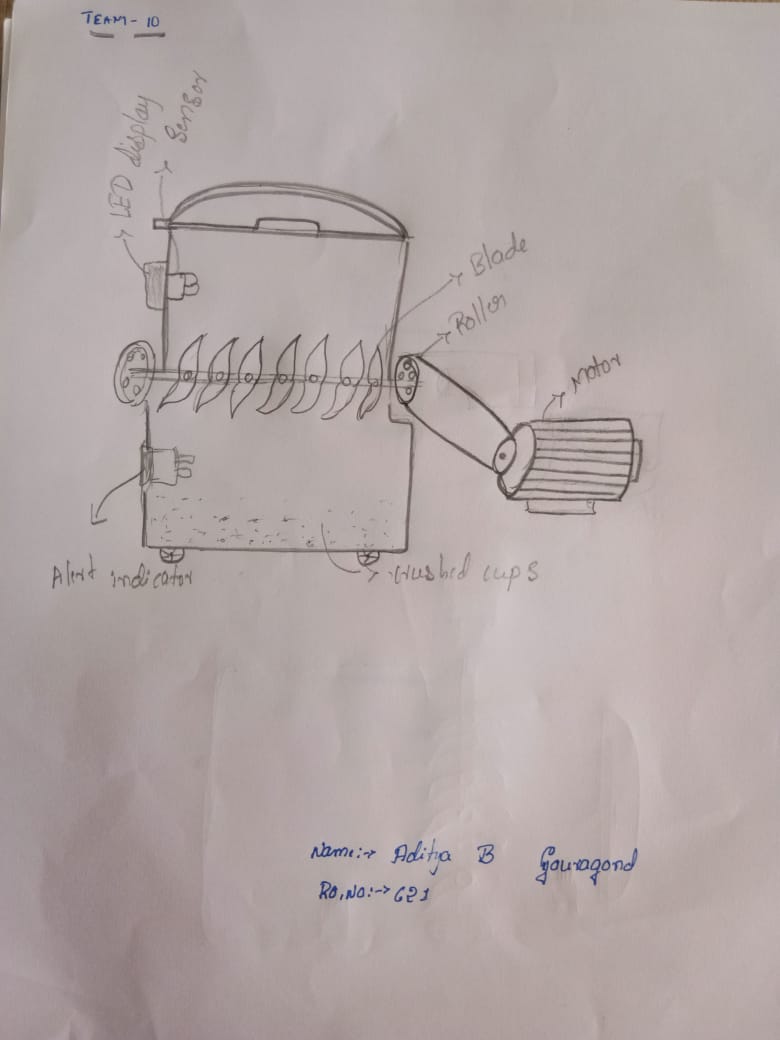 TEAM - 10
LED display
Sensor
Blade
Roller
Motor
Alert indicator
crushed cups
Name:→ Aditya B Gouragond
Ro,No:→ 621